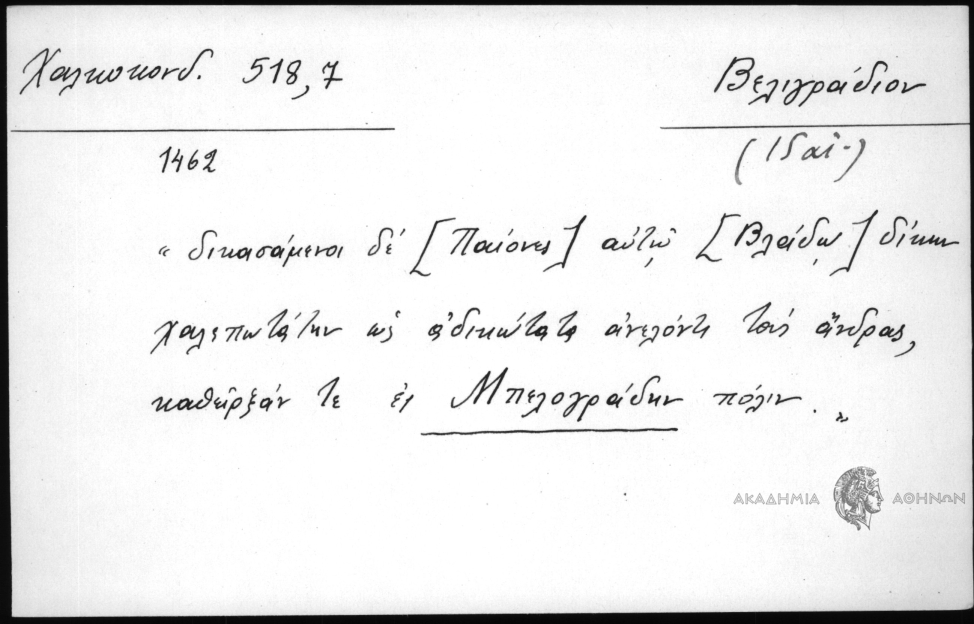 Χαλκοκονδ. 518,7
Βελιγράδιον
1462
(Ἰδαϊ-)
“ δικασάμενοι δέ [Παίονες] αὐτῷ [Βλάδῳ] δίκην
χαλεπωτάτην ὡς ἀδικώτατα ἀνελόντι τούς ἄνδρας,
καθεῖρξάν τε ἐς Μπελογράδην πόλιν. ”
ΑΚΑΔΗΜΙΑ ΑΘΗΝΩΝ